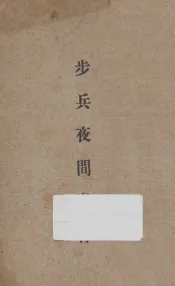 步兵夜間